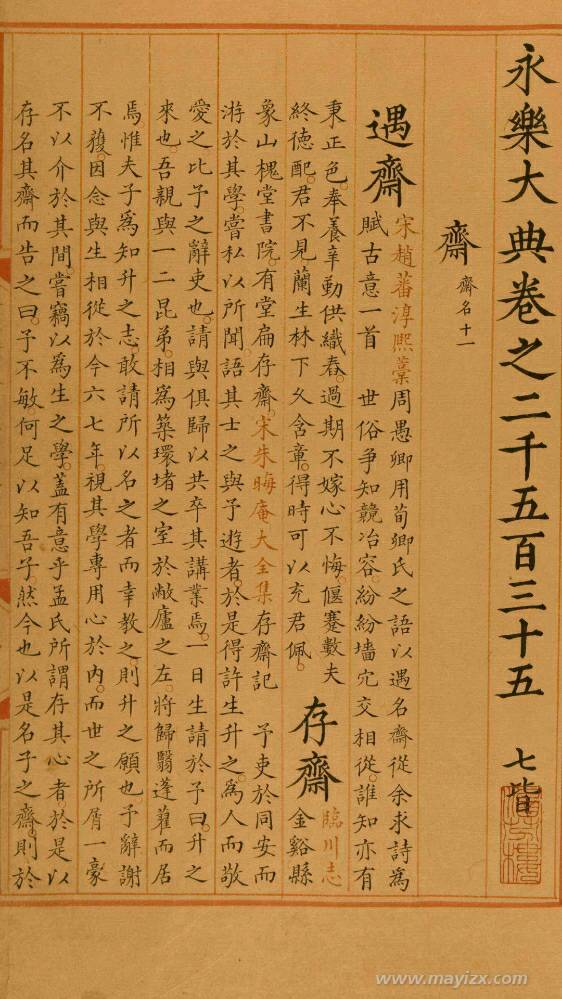 永樂大典卷之二千五百三十五 七皆
齋 齋名十一
遇齋 宋趙蕃淳熙藁周愚卿用荀卿氏之語以遇名齋從余求詩為
賦古意一首 世俗爭知競冶容紛紛墻宂交相從誰知亦有
秉正色奉養辛勤供織舂過期不嫁心不悔偃蹇數夫
終德配君不見蘭生林下久含章得時可以充君佩
存齋 臨川志
金谿縣
象山槐堂書院有堂扁存齋宋朱晦庵大全集存齋記 予吏於同安而
游於其學嘗私以所聞語其士之與予遊者於是得許生升之為人而敬
愛之比予之辭吏也請與俱歸以共卒其講業焉一日生請於予曰升之
來也吾親與一二昆弟相為築環堵之室於敝廬之左將歸翳蓬藋而居
焉惟夫子為知升之志敢請所以名之者而幸教之則升之願也予辭謝
不獲因念與生相從於今六七年視其學專用心於內而世之所屑一豪
不以介於其間嘗竊以為生之學蓋有意乎孟氏所謂存其心者於是以
存名其齋而告之曰予不敏何足以知吾子然今也以是名子之齋則於
www.mayizx.com